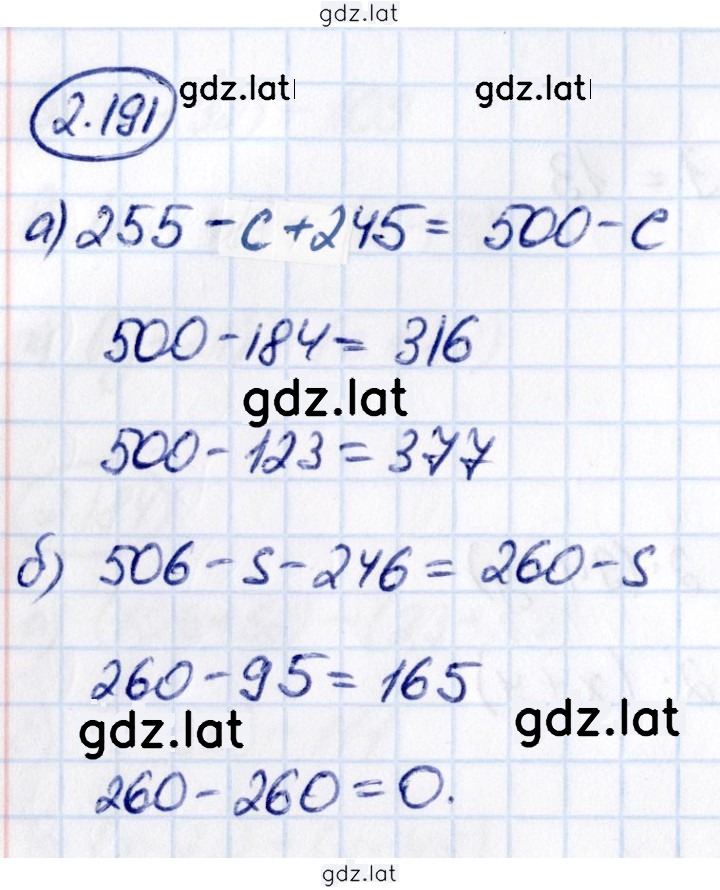 gdz.lat
2.191 gdz.lat gdz.lat
а) 255 - c + 245 = 500 - c
500 - 184 = 316
gdz.lat
500 - 123 = 377
б) 506 - s - 246 = 260 - s
260 - 95 = 165
gdz.lat gdz.lat
260 - 260 = 0.
gdz.lat